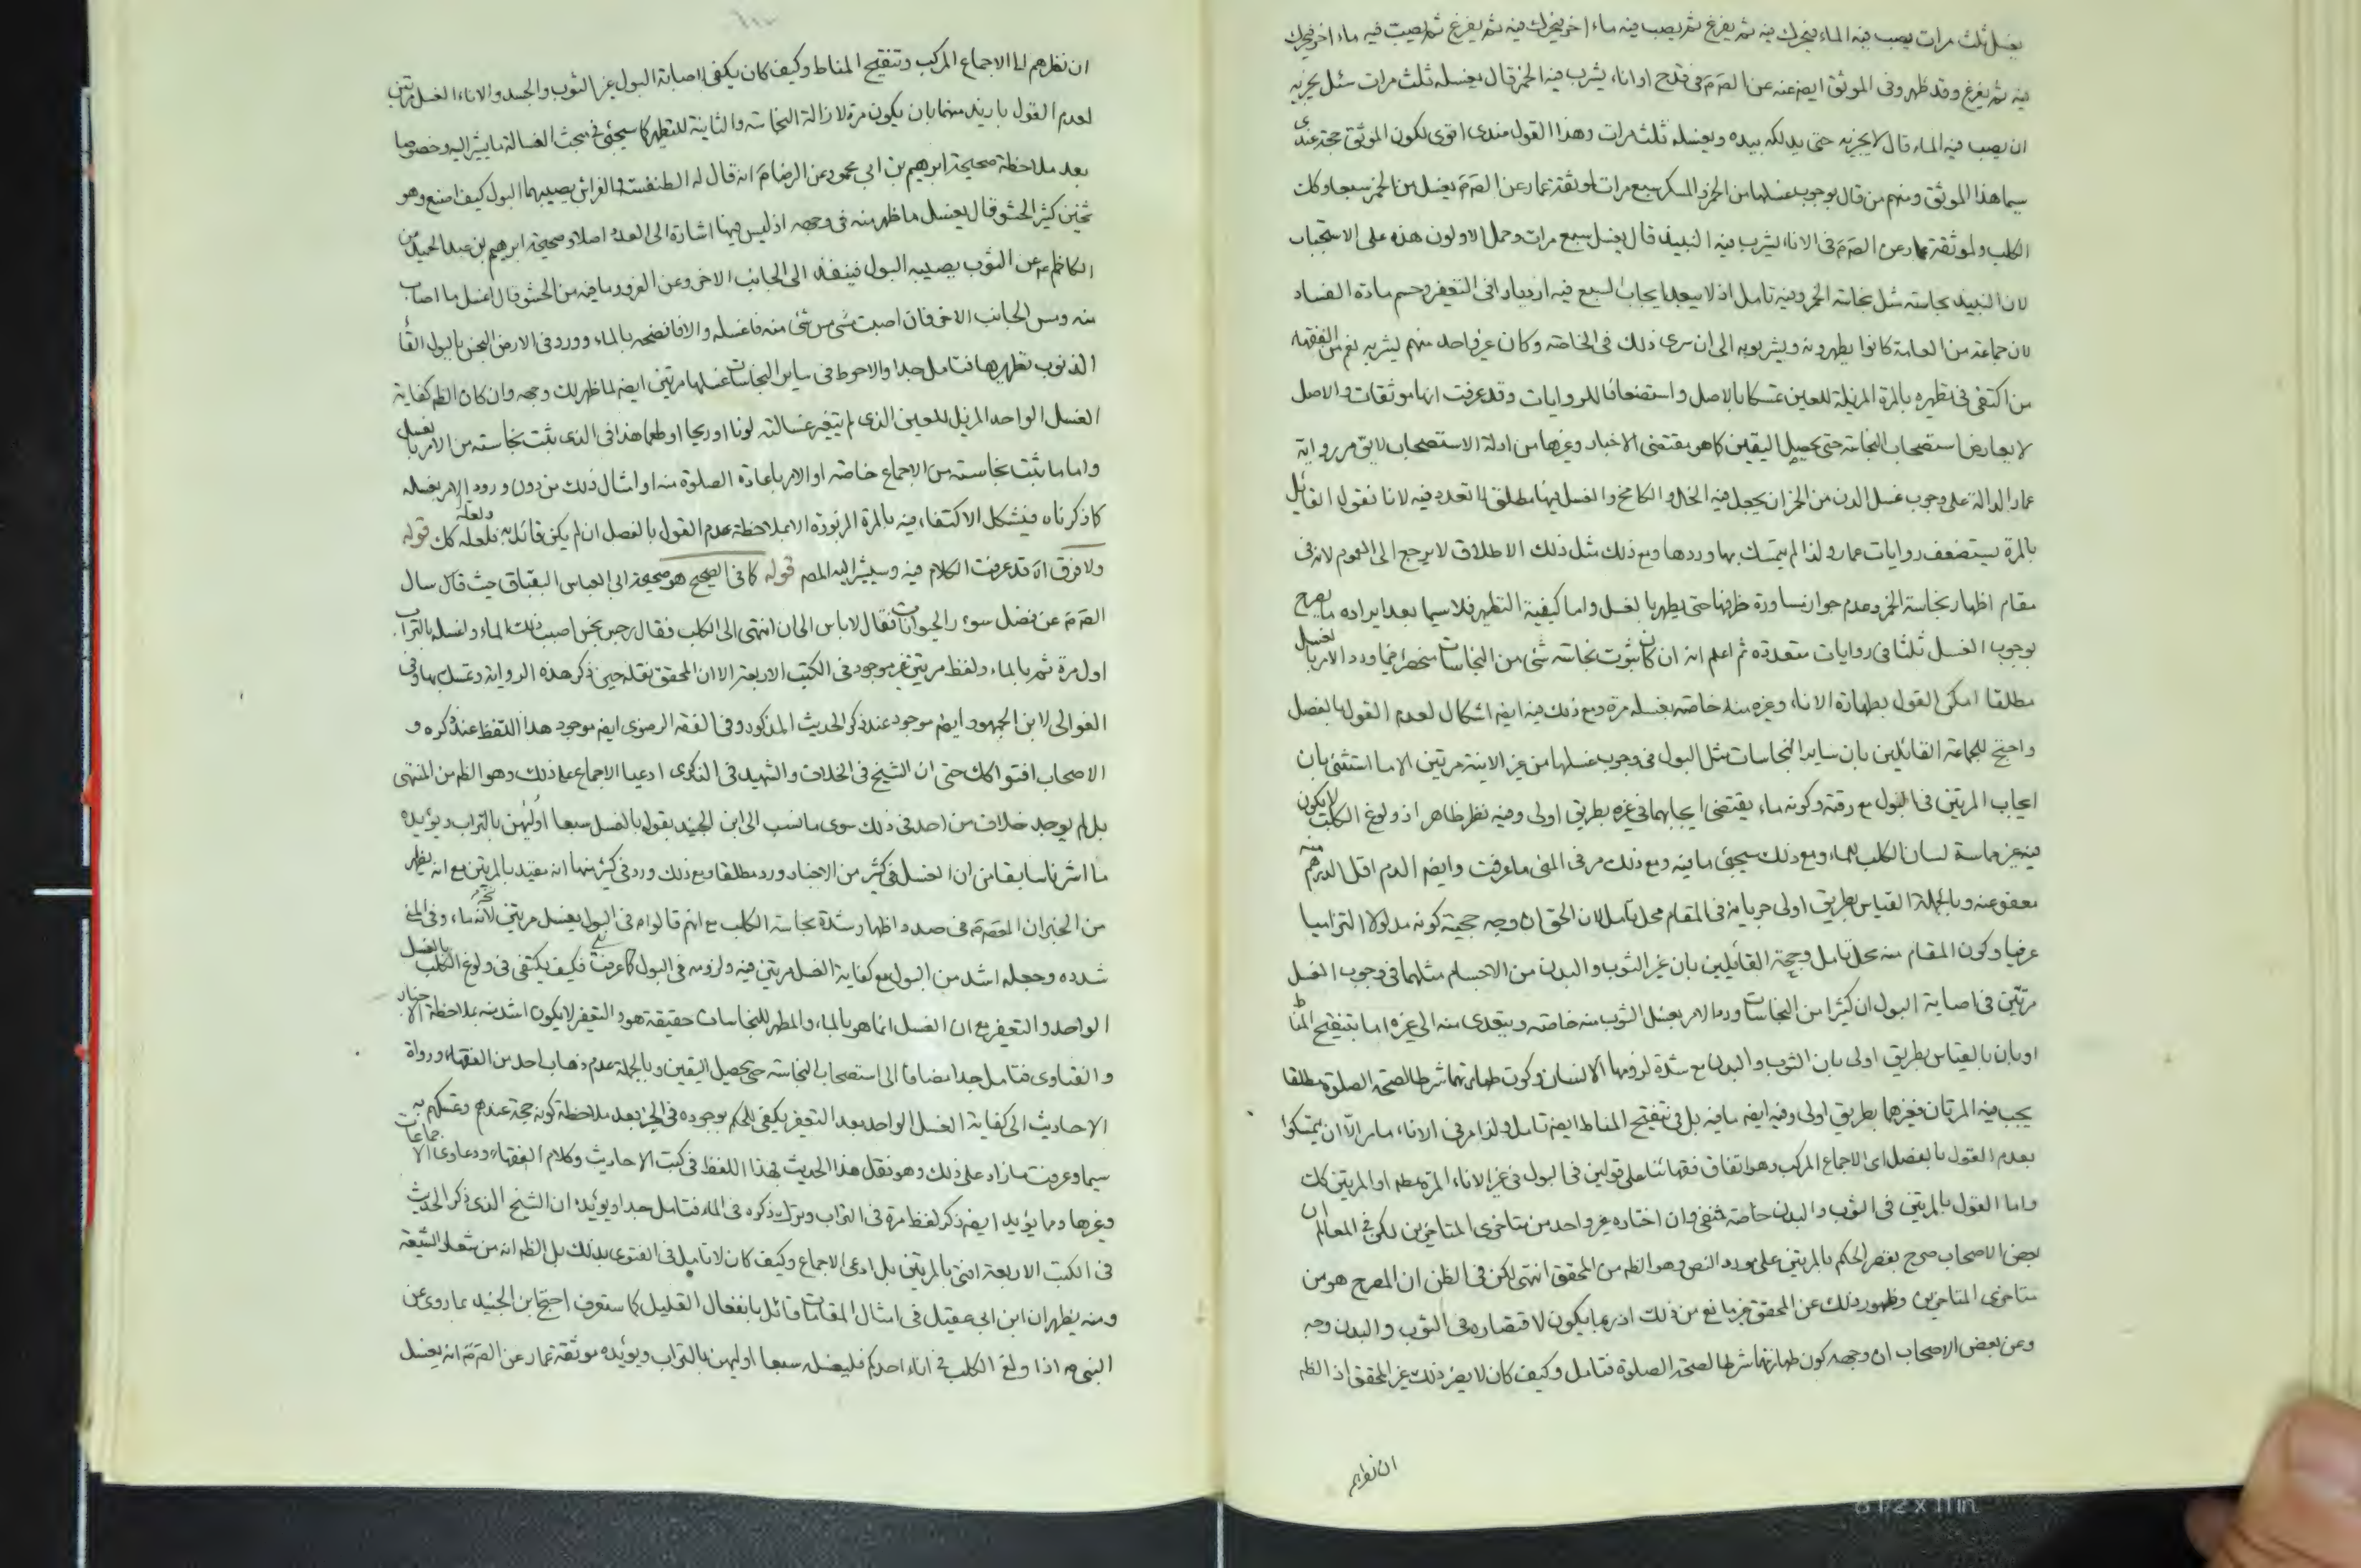 يغسل ثلث مرات يصب فيه الماء فيحرك فيه ثم يفرغ ثم يصب فيه ماء اخر فيحرك فيه ثم يفرغ ثم يصب فيه ماء اخر فيحرك
فيه ثم يفرغ وقد ظهر وفى الموثق ايضا عنه عن الصّ مَ فى قدح او اناء يشرب فيه الخمر قال يغسله ثلث مرات سئل يجزيه
ان يصب فيه الماء قال لا يجزيه حتى يدلكه بيده ويغسله ثلث مرات وهذا القول عندى اقوى لكون الموثق حجة عندى
سيما هذا الموثق ومنهم من قال بوجوب غسلها من الخمر والمسكر سبع مرات لموثقة عمار عن الصّ مَ يغسل من الخمر سبعا وكك
الكلب ولموثقة عمار عن الصّ مَ فى الاناء يشرب فيه النبيذ قال يغسل سبع مرات وحمل الاولون هذه على الاستحباب
لان النبيذ نجاسته مثل نجاسة الخمر وفيه تامل اذ لا يبعد ايجاب السبع فيه ازدياد فى التنفير وحسم مادة الفساد
لان جماعة من العامة كانوا يطهرونه ويشربونه الى ان سرى ذلك فى الخاصة وكان غير واحد منهم يشربه نعم من الفقهاء
من اكتفى فى تطهيره بالمرة المزيلة للعين تمسكا بالاصل واستضعافا للروايات وقد عرفت انها موثقات والاصل
لا يعارض استصحاب النجاسة حتى يحصل اليقين كما هو مقتضى الاخبار وغيرها من ادلة الاستصحاب لا يق مر رواية
عمار الدالة على وجوب غسل الدن من الخمر ان يجعل فيه الخل او الكامخ والغسل فيها مطلق لا تعدد فيه لانا نقول القائل
بالمرة يستضعف روايات عمار ولذا لم يتمسك بها وردها ومع ذلك مثل ذلك الاطلاق لا يرجع الى العموم لانه فى
مقام اظهار نجاسة الخمر وعدم جواز مساورة ظرفها حتى يطهر بالغسل واما كيفية التطهير فلا سيما بعد ايراده ما يصرح
بوجوب الغسل ثلثا فى روايات متعددة ثم اعلم انه ان كان ثبوت نجاسة شئ من النجاسات منحصرا فيما ورد الامر بالغسل
مطلقا امكن القول بطهارة الاناء وغيره منه خاصة بغسله مرة ومع ذلك فيه ايضا اشكال لعدم القول بالفصل
واحتج للجماعة القائلين بان ساير النجاسات مثل البول فى وجوب غسلها من غير الانية مرتين الا ما استثنى بان
ايجاب المرتين فى البول مع رقته وكونه ماء يقتضى ايجابهما فى غيره بطريق اولى وفيه نظر ظاهر اذ ولوغ الكلب لا يكون
فيه غير مماسة لسان الكلب للماء ومع ذلك سيجئ ما فيه ومع ذلك مر فى المنى ما عرفت وايضا الدم اقل الدرهم منه
معفو عنه وبالجملة القياس بطريق اولى جريانه فى المقام محل تامل لان الحق ان وجه حجيته كونه مدلولا التزاميا
عرفيا وكون المقام منه محل تامل وحجة القائلين بان غير الثوب والبدن من الاجسام مثلهما فى وجوب الغسل
مرتين فى اصابة البول ان كثيرا من النجاسات ورد الامر بغسل الثوب منه خاصة ويتعدى منه الى غيره اما بتنقيح المناط
او بان بالقياس بطريق اولى بان الثوب والبدن مع شدة لزومها الانسان وكون طهارتهما شرطا لصحة الصلوة مطلقا
يجب فيه المرتان فغيرهما بطريق اولى وفيه ايضا ما فيه بل فى تنقيح المناط ايضا تامل ولذا مر فى الاناء ما مر الا ان يتمسكوا
بعدم القول بالفصل اى الاجماع المركب وهو اتفاق فقهائنا على قولين فى البول فى غير الاناء المرة مطلقا او المرتين كك
واما القول بالمرتين فى الثوب والبدن خاصة فنفى وان اختاره غير واحد من متاخرى المتاخرين لكن فى المعالم ان
بعض الاصحاب صرح بقصر الحكم بالمرتين على مورد النص وهو الظ من المحقق انتهى لكن فى الظن ان المصرح هو من
متاخرى المتاخرين وظهور ذلك عن المحقق غير مانع من ذلك اذ ربما يكون لاقتصاره فى الثوب والبدن وجه
وعن بعض الاصحاب ان وجهه كون طهارتهما شرطا لصحة الصلوة فتامل وكيف كان لا يضر ذلك غير المحقق اذ الظ
ان نظرهم
ان نظرهم الى الاجماع المركب وتنقيح المناط وكيف كان يكفى اصابة البول عن الثوب والجسد والاناء الغسل مرتين
لعدم القول بازيد منهما بان يكون مرة لازالة النجاسة والثانية للتطهير كما سيجئ فى مبحث الغسالة ما يشير اليه وخصوصا
بعد ملاحظة صحيحة ابرهيم بن ابى محمود عن الرضا مَ انه قال له الطنفسة والفراش يصيبهما البول كيف اصنع وهو
ثخين كثير الحشو قال يغسل ما ظهر منه فى وجهه اذ ليس فيها اشارة الى العدد اصلا وصحيحة ابرهيم بن عبد الحميد عن
الكاظم عه عن الثوب يصيبه البول فينفذ الى الجانب الاخر وعن الفرو وما فيه من الحشو قال اغسل ما اصاب
منه ومس الجانب الاخر فان اصبت مس شئ منه فاغسله والا فانضحه بالماء وورد فى الارض النجس بالبول القاء
الذنوب تطهيرها فتامل جدا والاحوط فى ساير النجاسات غسلها مرتين ايضا لما ظهر لك وجهه وان كان الظ كفاية
الغسل الواحد المزيل للعين الذى لم يتغير غسالته لونا او ريحا او طعما هذا فى الذى يثبت نجاسته من الامر بالغسل
واما ما يثبت نجاسته من الاجماع خاصة او الامر باعادة الصلوة منه او امثال ذلك من دون ورود الامر بغسله
كما ذكرناه فيشكل الاكتفاء فيه بالمرة المزبورة الا بملاحظة عدم القول بالفصل ان لم يكن قائل به ولعله فلعله كك قوله
ولا فرق اه قد عرفت الكلام فيه وسيشير اليه المصم قوله كما فى الصحيح هو صحيحة ابى العباس البقباق حيث قال سال
الصّ مَ عن فضل سؤر الحيوانات فقال لا باس الى ان انتهى الى الكلب فقال رجس نجس اصبب ذلك الماء واغسله بالتراب
اول مرة ثم بالماء ولفظ مرتين غير موجود فى الكتب الاربعة الا ان المحقق نقله حين ذكر هذه الرواية وتمسك بها وفى
الغوالى لابن الجمهور ايضا موجود عند ذكر الحديث المذكور وفى الفقه الرضوى ايضا موجود هذا اللفظ عند ذكره و
الاصحاب افتوا كك حتى ان الشيخ فى الخلاف والشهيد فى الذكرى ادعيا الاجماع على ذلك وهو الظ من المنتهى
بل لم يوجد خلاف من احد فى ذلك سوى ما نسب الى ابن الجنيد بقوله بالغسل سبعا اوليهن بالتراب ويؤيده
ما اشرنا سابقا من ان الغسل فى كثير من الاخبار ورد مطلقا ومع ذلك ورد فى كثير منها انه مقيد بالمرتين مع انه يظهر
من الخبر ان المعصوم فى صدد اظهار شدة نجاسة الكلب مع انهم قالوا ه فى البول يغسل مرتين لانه ماء وفى المنى
شدده وجعله اشد من البول مع كفاية الغسل مرتين فيه ولزومه فى البول كما عرفت فكيف يكتفى فى ولوغ الكلب بالغسل
الواحد والتعفير مع ان الغسل انما هو بالماء والمطهر للنجاسات حقيقة هو والتعفير لا يكون اشد منه بملاحظة الاخبار
والفتاوى فتامل جدا مضافا الى استصحاب النجاسة حتى يحصل اليقين وبالجملة عدم ذهاب احد من الفقهاء ورواة
الاحاديث الى كفاية الغسل الواحد بعد التعفير يكفى للحكم بوجوده فى الخبر بعد ملاحظة كونه حجة عندهم وتمسكهم به
سيما وعرفت ما زاد على ذلك وهو نقل هذا الحديث بهذا اللفظ فى كتب الاحاديث وكلام الفقهاء ودعاوى الاجماعات
وغيرها ومما يؤيد ايضا ذكر لفظ مرة فى التراب وترك ذكره فى الماء فتامل جدا ويؤيده ان الشيخ الذى ذكر الحديث
فى الكتب الاربعة افتى بالمرتين بل ادعى الاجماع وكيف كان لا تامل فى الفتوى بذلك بل الظ انه من شعار الشيعة
ومنه يظهر ان ابن ابى عقيل فى امثال المقامات قائل بانفعال القليل كما ستعرف احتج ابن الجنيد بما روى عن
النبى ص اذا ولغ الكلب فى اناء احدكم فليغسله سبعا اوليهن بالتراب ويؤيده موثقة عمار عن الصّ مَ انه يغسل